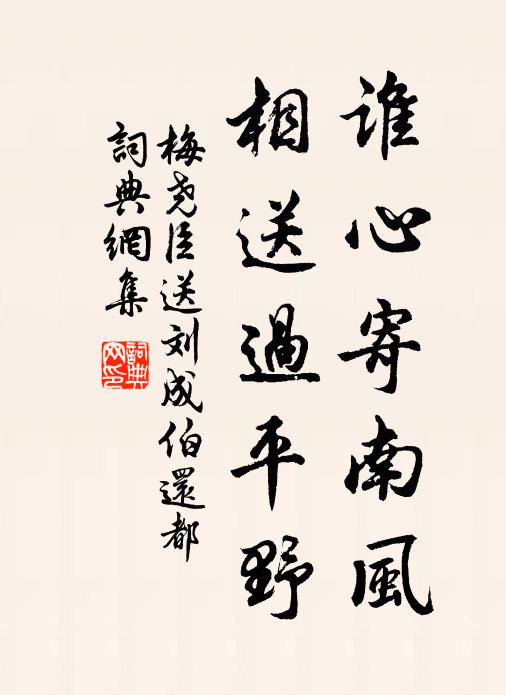 谁心寄南風
相送過平野
梅尧臣送刘成伯還都
詞典網集
詞典網印